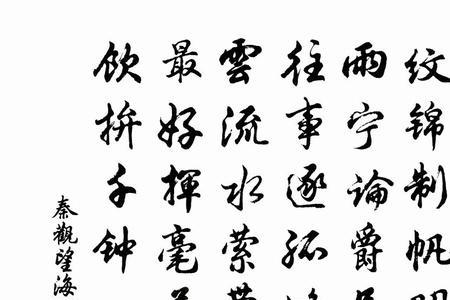 纹锦制帆
雨宁論爵
往事逐孤
雲流水萦
最好揮毫
飲拚千钟
秦觀望海